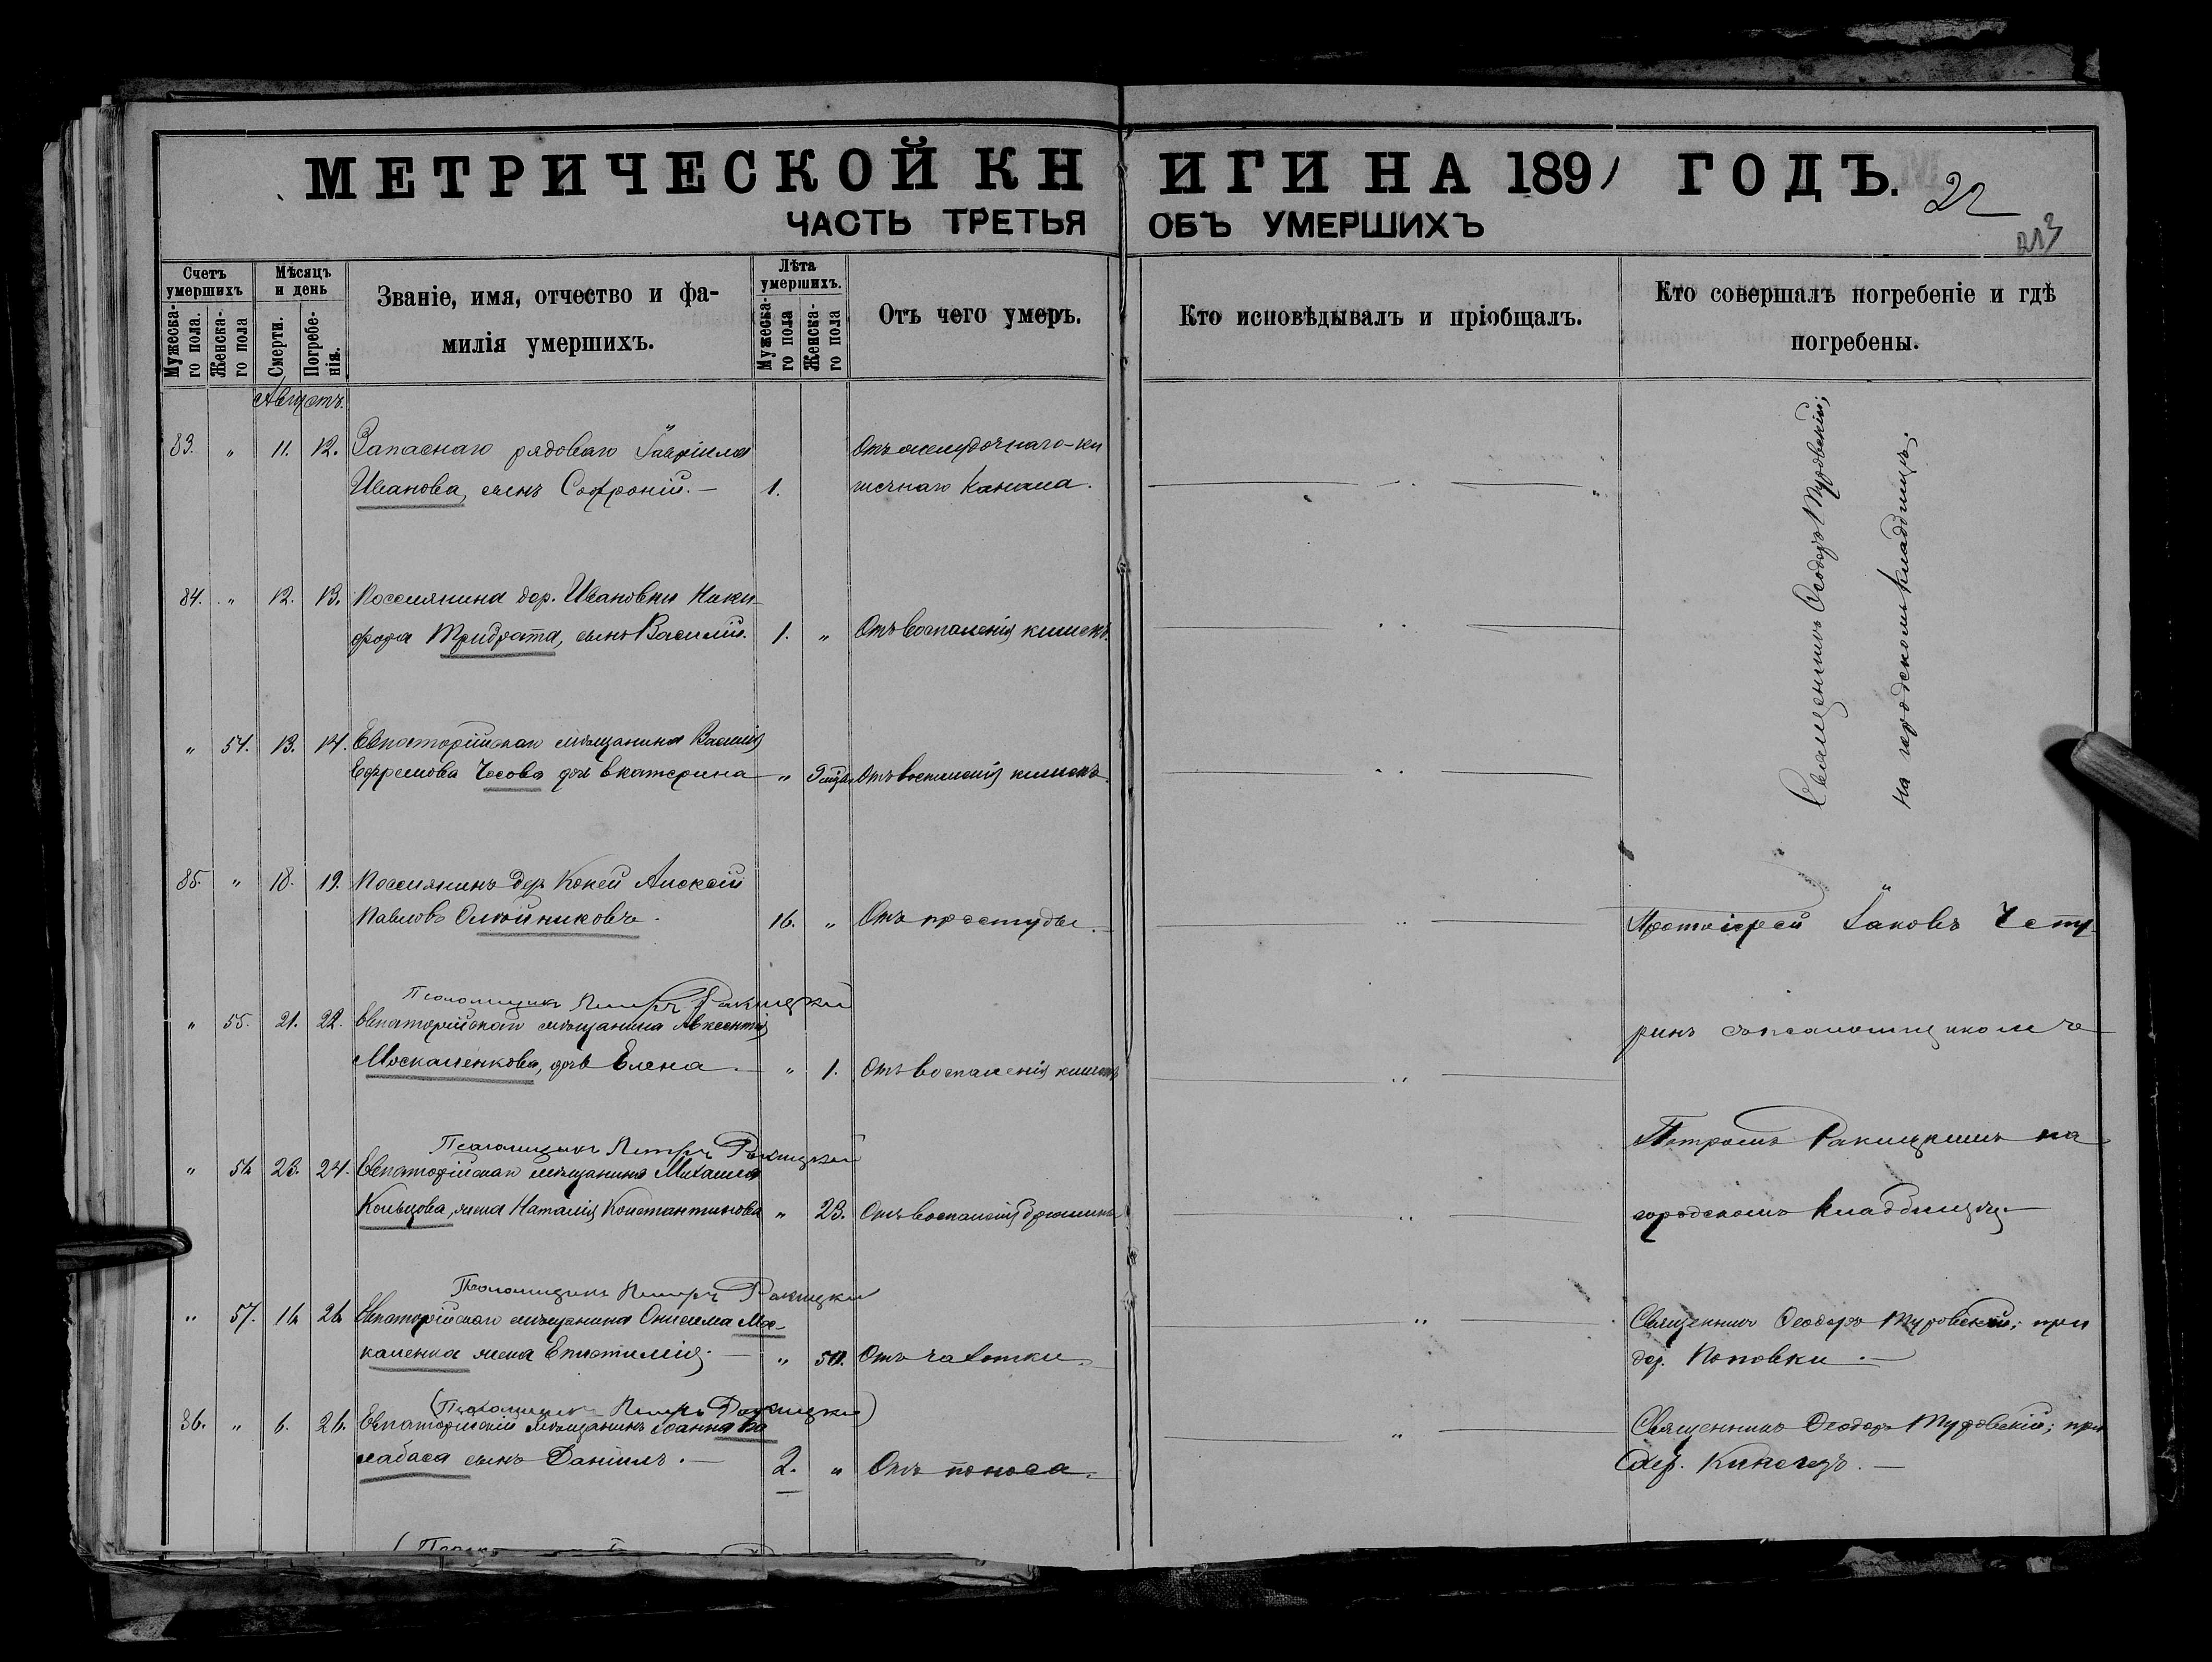 МЕТРИЧЕСКОЙ КНИГИ НА 1891 ГОДЪ.
22
ЧАСТЬ ТРЕТЬЯ ОБЪ УМЕРШИХЪ
213
Счетъ умершихъ
Мужеска-го пола.
Женска-го пола
Мѣсяцъ и день
Смерти.
Погребе-нія.
Званіе, имя, отчество и фа-
милія умершихъ.
Лѣта умершихъ.
Мужеска-го пола
Женска-го пола
Отъ чего умеръ.
Кто исповѣдывалъ и пріобщалъ.
Кто совершалъ погребеніе и гдѣ
погребены.
Августъ.
83. " 11. 12. Запаснаго рядоваго Гавріила Отъ желудочнаго-ки
Иванова, сынъ Софроній. — 1. шечнаго канала.
Священникъ Ѳеодоръ Туровскій;
на городскомъ кладбищѣ.
84. " 12. 13. Поселянина дер. Ивановки Ники-
фора Тридрата, сынъ Василій. 1. " Отъ воспаленія кишекъ.
" 54. 13. 14. Евпаторійскаго мѣщанина Василія
Ефремова Чесова дочь Екатерина " 9 мѣс. Отъ воспаленія кишекъ.
85. " 18. 19. Поселянинъ дер. Конси Алексій
Павловъ Олейниковъ. 16. " Отъ простуды. Протоіерей Іаковъ Чепу-
Псаломщикъ Петръ Ракицкій
" 55. 21. 22. Евпаторійскаго мѣщанина Авксентія ринъ съ псаломщикомъ
Москаленкова, дочь Елена. " 1. Отъ воспаленія кишекъ
Псаломщикъ Петръ Ракицкій Петромъ Ракицкимъ на
" 56 23. 24. Евпаторійскаго мѣщанина Михаила
Кольцова, жена Наталія Константинова " 23. Отъ воспаленія брюшины городскомъ кладбищѣ.
Псаломщикъ Петръ Ракицкій
" 57. 16 26 Евпаторійскаго мѣщанина Онисима Мос- Священникъ Ѳеодоръ Туровскій; при
каленка жена Епистимія. — " 50. Отъ чахотки. дер. Поповки. —
(Псаломщикъ Петръ Ракицкій)
86. " 6. 26. Евпаторійскій мѣщанинъ Іоанна Ка Священникъ Ѳеодоръ Туровскій; при
лабаса сынъ Даніилъ. — 2. " Отъ поноса. дер. Кинегезъ. —